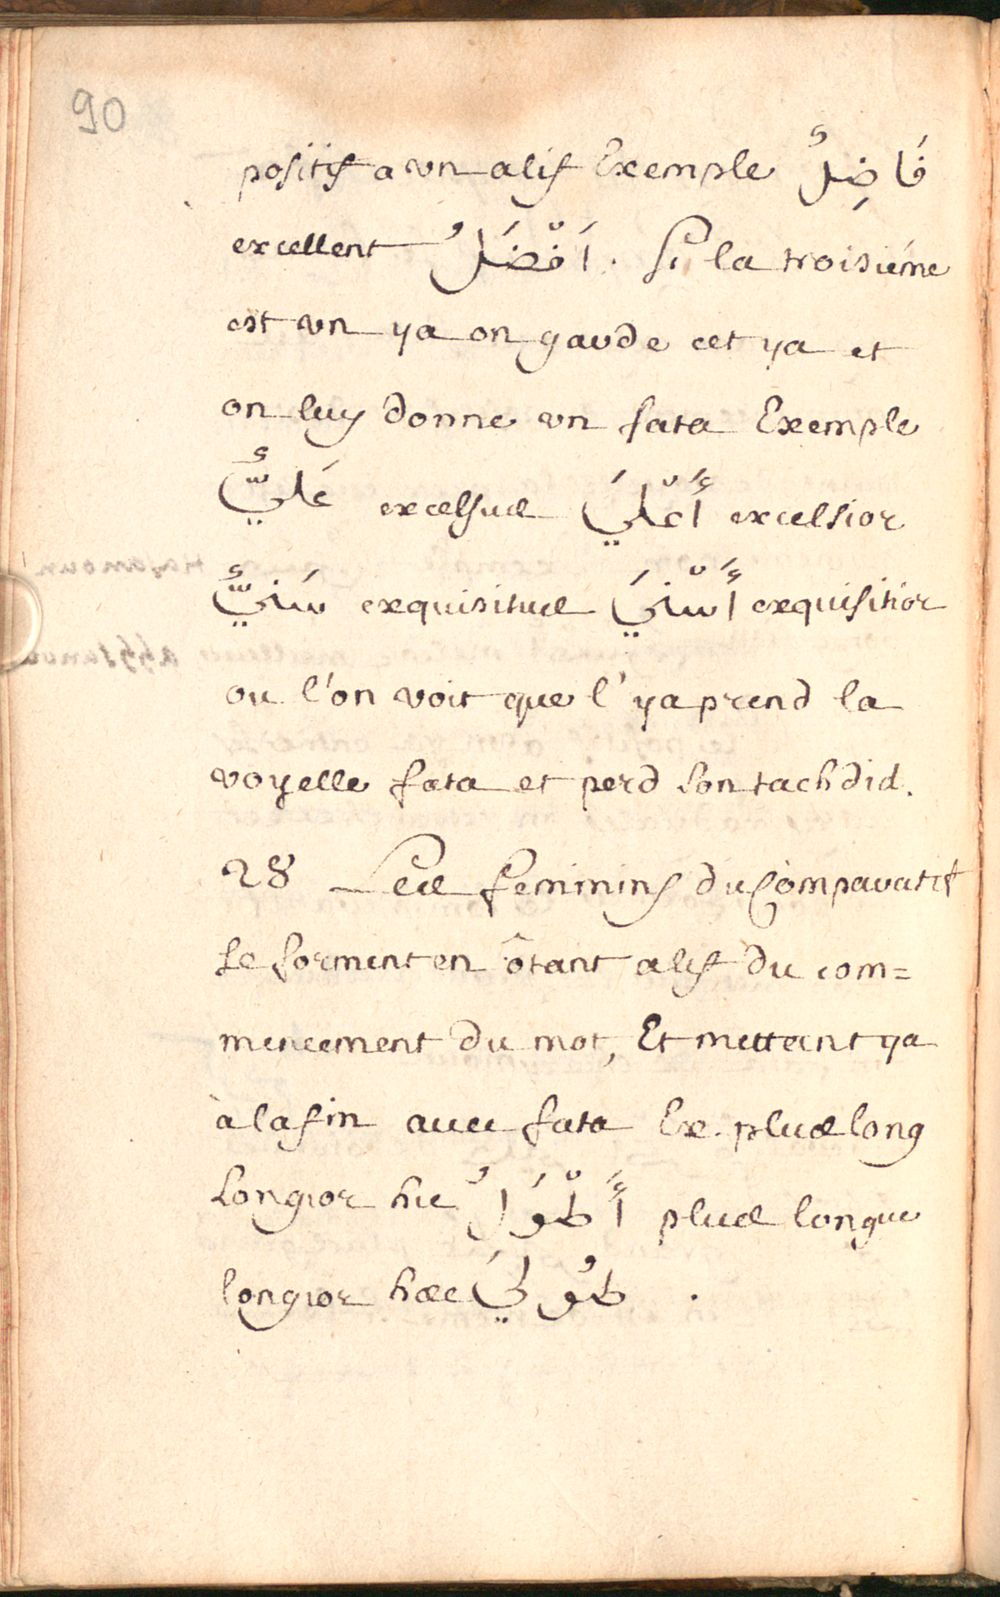 90
positif a vn alif Exemple فَاضِلٌ
excellent اَفْضَلُ . Si la troisiéme
est vn ya on garde cet ya et
on luy donne vn fata Exemple
عَليٌّ excelsus أَعْليَ excelsior
سَنيٌّ exquisitus أَسْنيَ exquisitior
ou l'on voit que l'ya prend la
voyelle fata et perd son tachdid.
28 Les feminins du Comparatif
se forment en ôtant alif du com=
mencement du mot, Et mettant ya
à la fin avec fata Ex. plus long
Longior hic أَطْوَلُ plus longue
longior hæc طُوليَ .